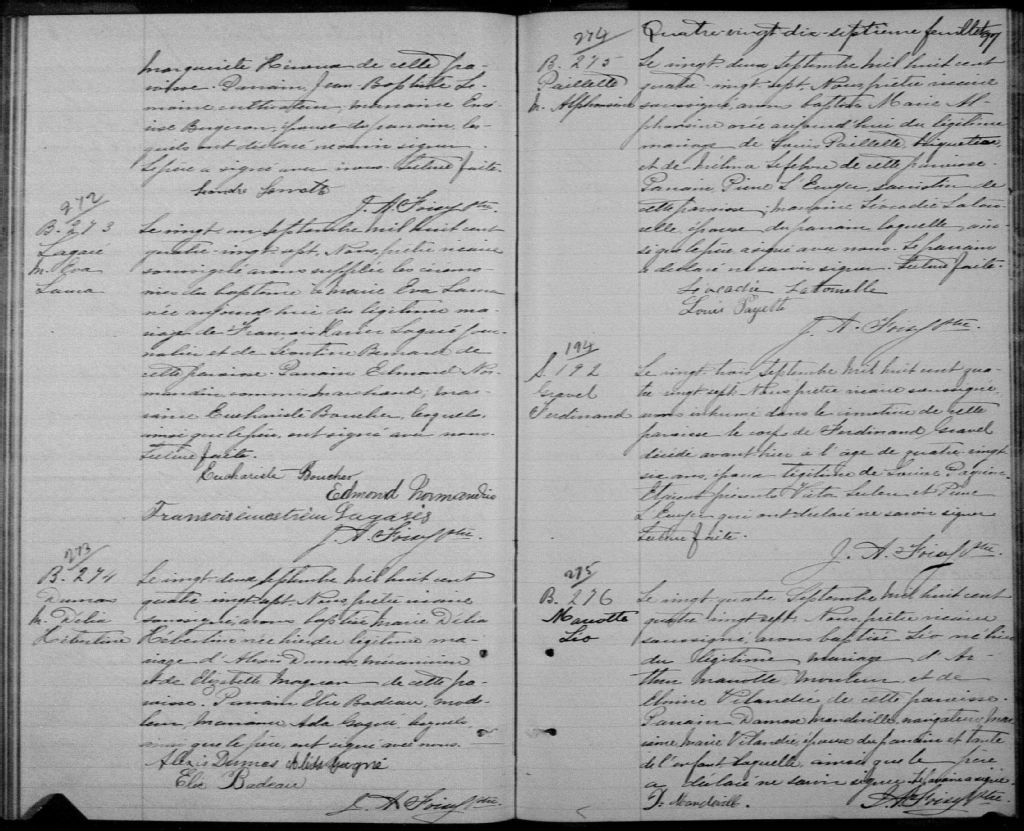 Marguerite de cette pa-
roisse. Parrain, Jean Baptiste Le-
maire cultivateur, marraine
Bergeron, épouse du parrain, les-
quels ont déclaré ne savoir signer.
Le père a signé avec nous. Lecture faite.
J. A. Foisy Ptre.
272
B. 273
Laqué
M. Eva
Laura
Le vingt un septembre mil huit cent
quatre-vingt-sept, Nous, prêtre vicaire
soussigné avons suppléé les cérémo-
nies du baptême à Marie Eva Laura
née aujourd'hui du légitime ma-
riage de François Xavier jour-
nalier et de Léontine Bernard de
cette paroisse. Parrain Edmond Nor-
mandin commis marchand; mar-
raine Euchariste Boucher, lesquels,
ainsi que le père, ont signé avec nous.
Lecture faite.
Euchariste Boucher
Edmond Normandin
J. A. Foisy Ptre.
273
B. 274
Dumas
M. Délia
Albertine
Le vingt-deux septembre mil huit cent
quatre-vingt-sept. Nous prêtre vicaire
soussigné avons baptisé Marie Délia
Albertine née hier du légitime ma-
riage d'Alexis Dumas mécanicien
et de Elizabeth Magnan de cette pa-
roisse. Parrain Elie Badeau, mod-
leur, marraine Ada Gagné lesquels,
ainsi que le père, ont signé avec nous.
Alexis Dumas Gagné
Elie Badeau
J. A. Foisy Ptre.
Quatre-vingt dix-septième feuillet 97
274
B. 275
Paillette
M. Alphonsine
Le vingt-deux septembre mil huit cent
quatre-vingt-sept. Nous prêtre vicaire
soussigné, avons baptisé Marie Al-
phonsine née aujourd'hui du légitime
mariage de Louis Paillette
et de Mélina Lefebvre de cette paroisse.
Parrain, Pierre L'Eveque, sacristin de
cette paroisse; marraine Léocadie Latou-
relle épouse du parrain laquelle ain-
si que le père a signé avec nous. Le parrain
a déclaré ne savoir signer. Lecture faite.
Léocadie Latourelle
Louis Payette
J. A. Foisy Ptre.
194
S. 192
Gravel
Ferdinand
Le vingt trois Septembre mil huit cent qua-
tre vingt sept. Nous prêtre vicaire soussigné,
avons inhumé dans le cimetière de cette
paroisse le corps de Ferdinand Gravel
décédé avant hier à l'âge de quatre-vingt
six ans, époux légitime de Louise Paquin.
Etaient présents Victor et Pierre
L'Eveque qui ont déclaré ne savoir signer
Lecture faite.
J. A. Foisy Ptre.
275
B. 276
Marotte
Léo
Le vingt quatre Septembre mil huit cent
quatre vingt sept. Nous prêtre vicaire
soussigné, avons baptisé Léo né hier
du légitime mariage d'Ar-
thur Marotte Mouleur et de
Velandré de cette paroisse.
Parrain Damase Mandeville, navigateur, mar-
raine Marie Velandré épouse du parrain et tante
de l'enfant laquelle ainsi que le père
a déclaré ne savoir signer. Le parrain a signé.
D. Mandeville.
J. A. Foisy Ptre.